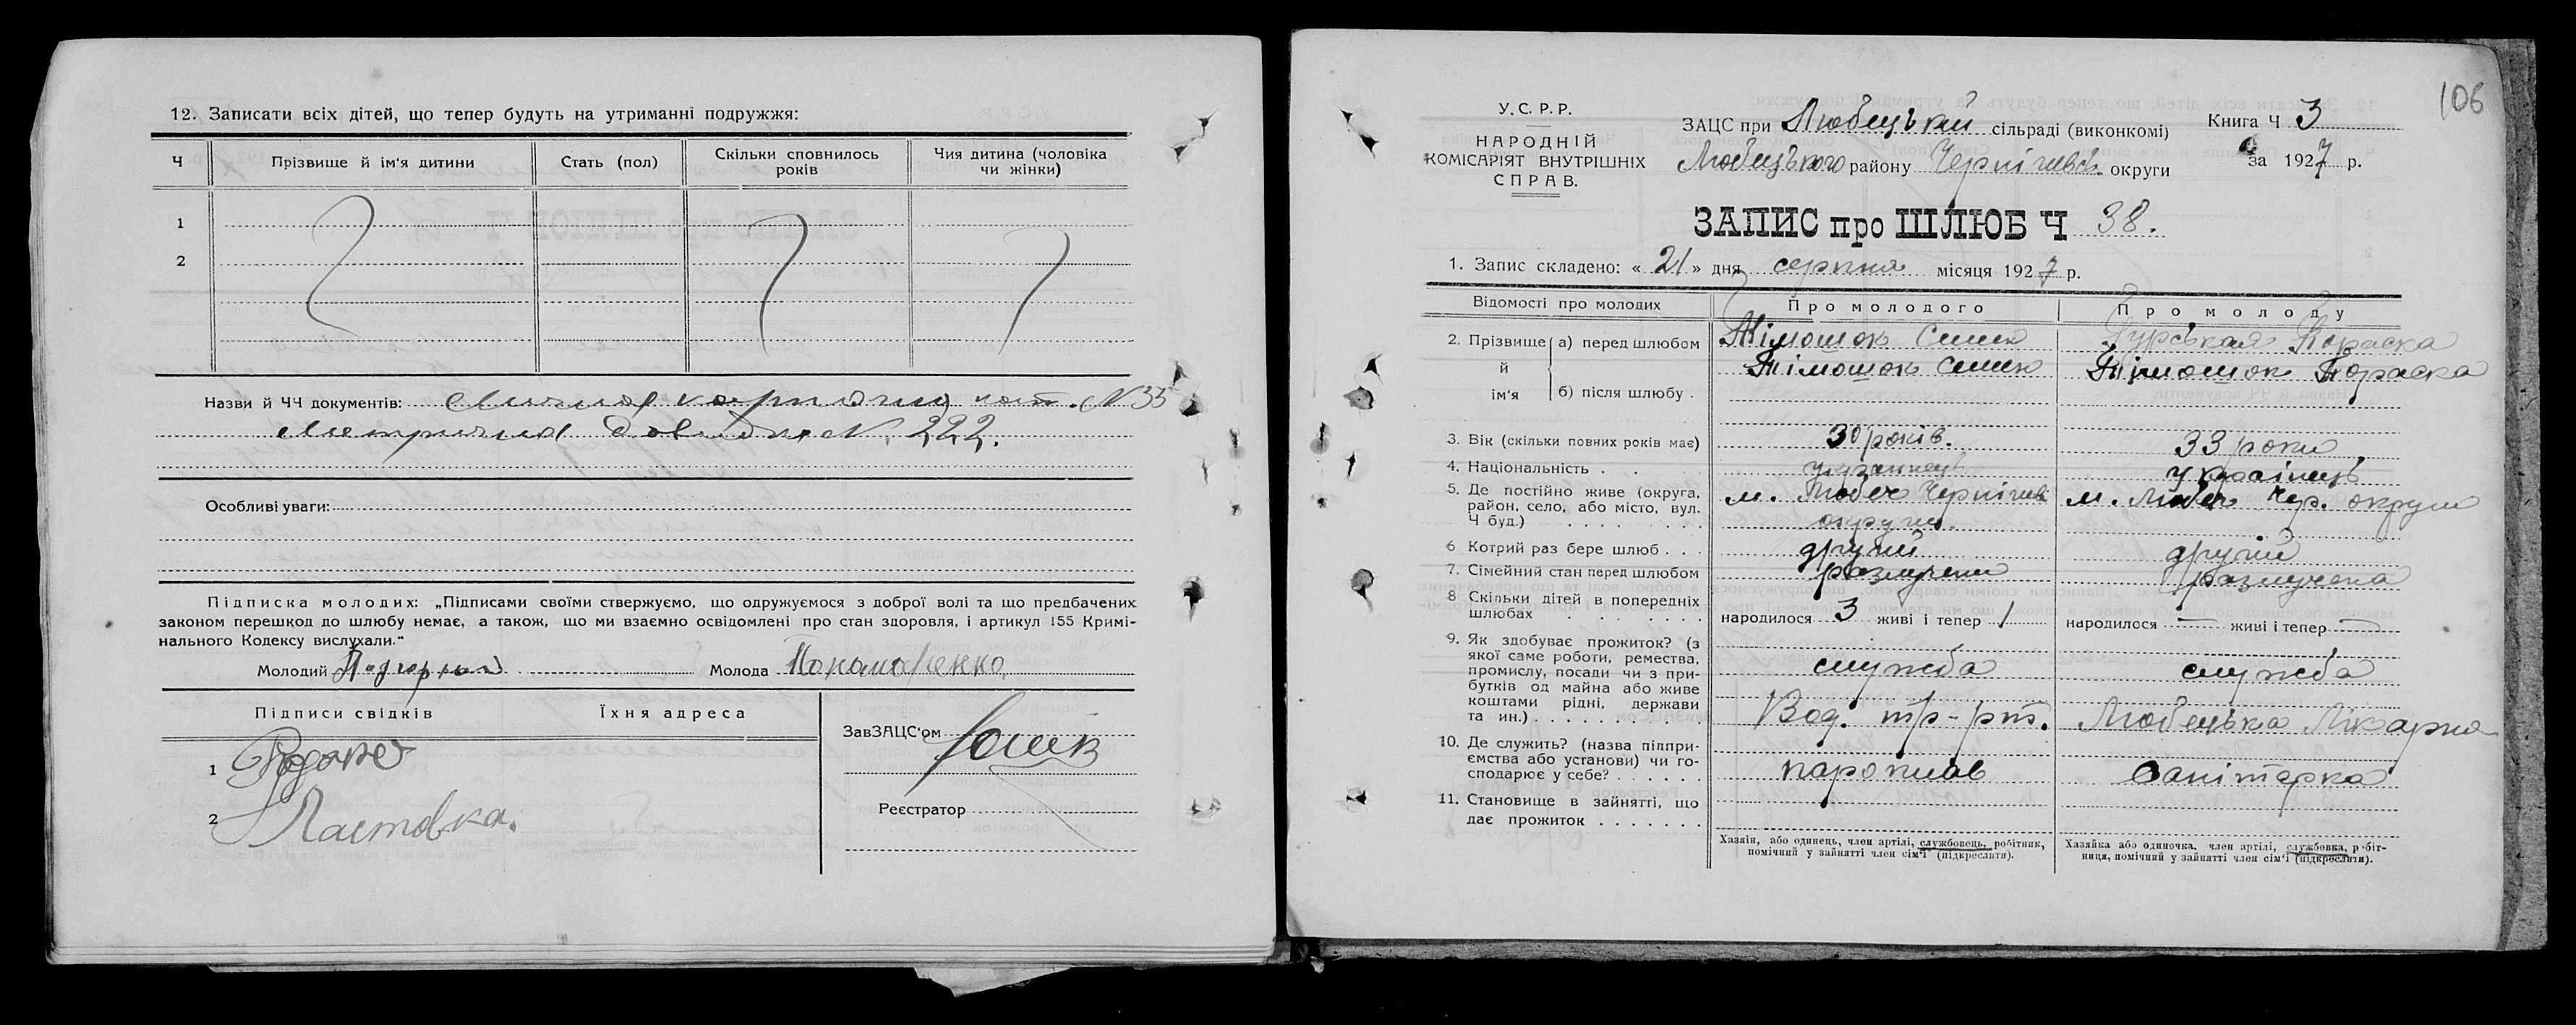 12. Записати всіх дітей, що тепер будуть на утриманні подружжя:
Ч Прізвище й ім'я дитини Стать (пол) Скільки сповнилось років Чия дитина (чоловіка чи жінки)
1
2
Назви й ЧЧ документів: N 35
Метрична довидка N. 222.
Особливі уваги:
Підписка молодих: „Підписами своїми стверджуємо, що одружуємося з доброї волі та що предбачених
законом перешкод до шлюбу немає, а також, що ми взаємно освідомлені про стан здоровля, і артикул 155 Кримі-
нального Кодексу вислухали."
Молодий Молода Пономаренко
Підписи свідків Їхня адреса
ЗавЗАЦС'ом
1
2 Ластовка.
Реєстратор
106
У.С.Р.Р.
НАРОДНІЙ
КОМІСАРІЯТ ВНУТРІШНІХ
СПРАВ.
ЗАЦС при Любецький сільраді (виконкомі)
Любецького району Чернігивсь. округи
Книга Ч 3
за 1927 р.
ЗАПИС про ШЛЮБ Ч 38.
1. Запис складено: « 21 » дня серпня місяця 1927 р.
Відомості про молодих Про молодого Про молоду
2. Прізвище й ім'я а) перед шлюбом Тімошок Семен Гурськая Параска
б) після шлюбу . Тімошок Семен Тімошок Параска
3. Вік (скільки повних років має) 30 років. 33 роки
4. Національність . . українець українець
5. Де постійно живе (округа, район, село, або місто, вул. Ч буд.) . . . . м. Любеч Чернігивс округи. м. Любеч Чер. округи
6 Котрий раз бере шлюб . . . другий другий
7. Сімейний стан перед шлюбом разлучени разлучена
8 Скільки дітей в попередніх шлюбах . . . . народилося 3 живі і тепер 1 народилося — живі і тепер —
9. Як здобуває прожиток? (з якої саме роботи, ремества, промислу, посади чи з прибутків од майна або живе коштами рідні, держави та ин.) . . . . служба служба
10. Де служить? (назва підприємства або установи) чи господарює у себе? . . . . Вод. тр-рт. Любецька Лікарня
11. Становище в зайнятті, що дає прожиток . . . . пароплав санітарка
Хазяїн, або одинець, член артілі, службовець, робітник,
помічний у зайнятті член сім'ї (підкреслити).
Хазяйка або одиночка, член артілі, службовка, робіт-
ниця, помічний у зайнятті член сім'ї (підкреслити).